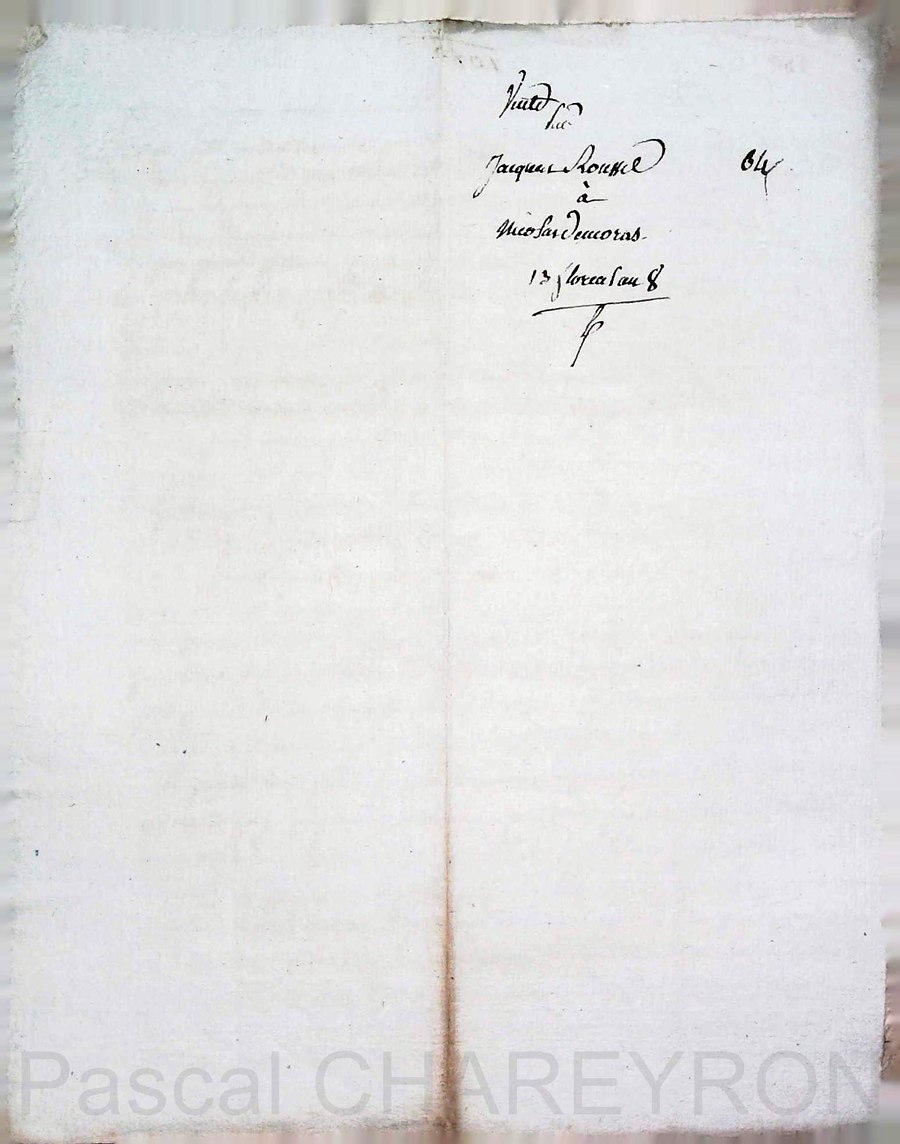 Vente
par
Jacques Roussel 64
à
Nicolas Demoras
13 floreal an 8
Pascal CHAREYRON